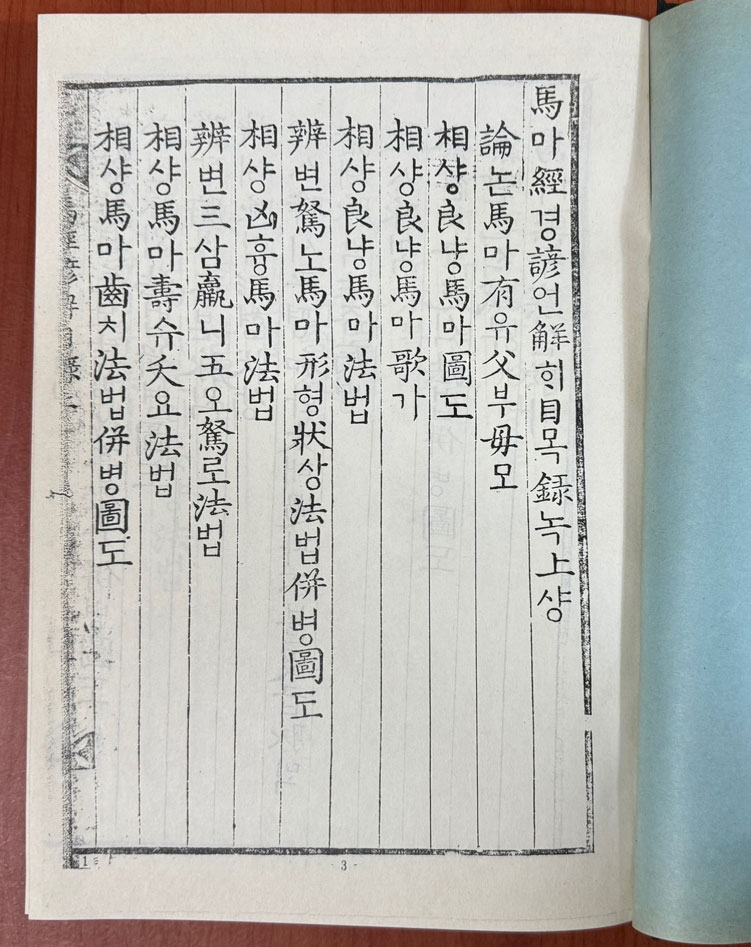 馬마經경諺언解ᄒᆡ目목錄녹上샹
論논馬마有유父부母모
相샹良냥馬마圖도
相샹良냥馬마歌가
相샹良냥馬마法법
辨변駑노馬마形형狀상法법併병圖도
相샹凶흉馬마法법
辨변三삼羸니五오駑로法법
相샹馬마壽슈夭요法법
相샹馬마齒치法법併병圖도
- 3 -
1